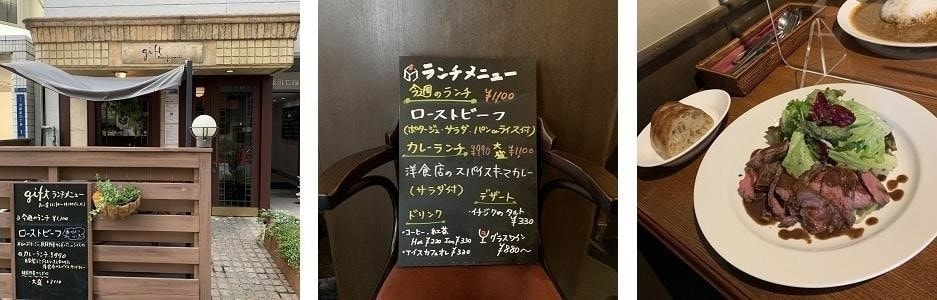 gift
gift ランチメニュー
今週のランチ ¥1,100
ローストビーフ
カレーランチ ¥990
ランチメニュー
今週のランチ ¥1,100
ローストビーフ
(ポタージュ・サラダ、パンorライス付)
カレーランチ ¥990 大盛 ¥1,100
洋食店のスパイスキーマカレー
(サラダ付)
デザート
・イチジクのタルト
¥330
ドリンク
・コーヒー、紅茶
Hot ¥220 Ice ¥330
・アイスカフェオレ ¥330
グラスワイン
¥880〜